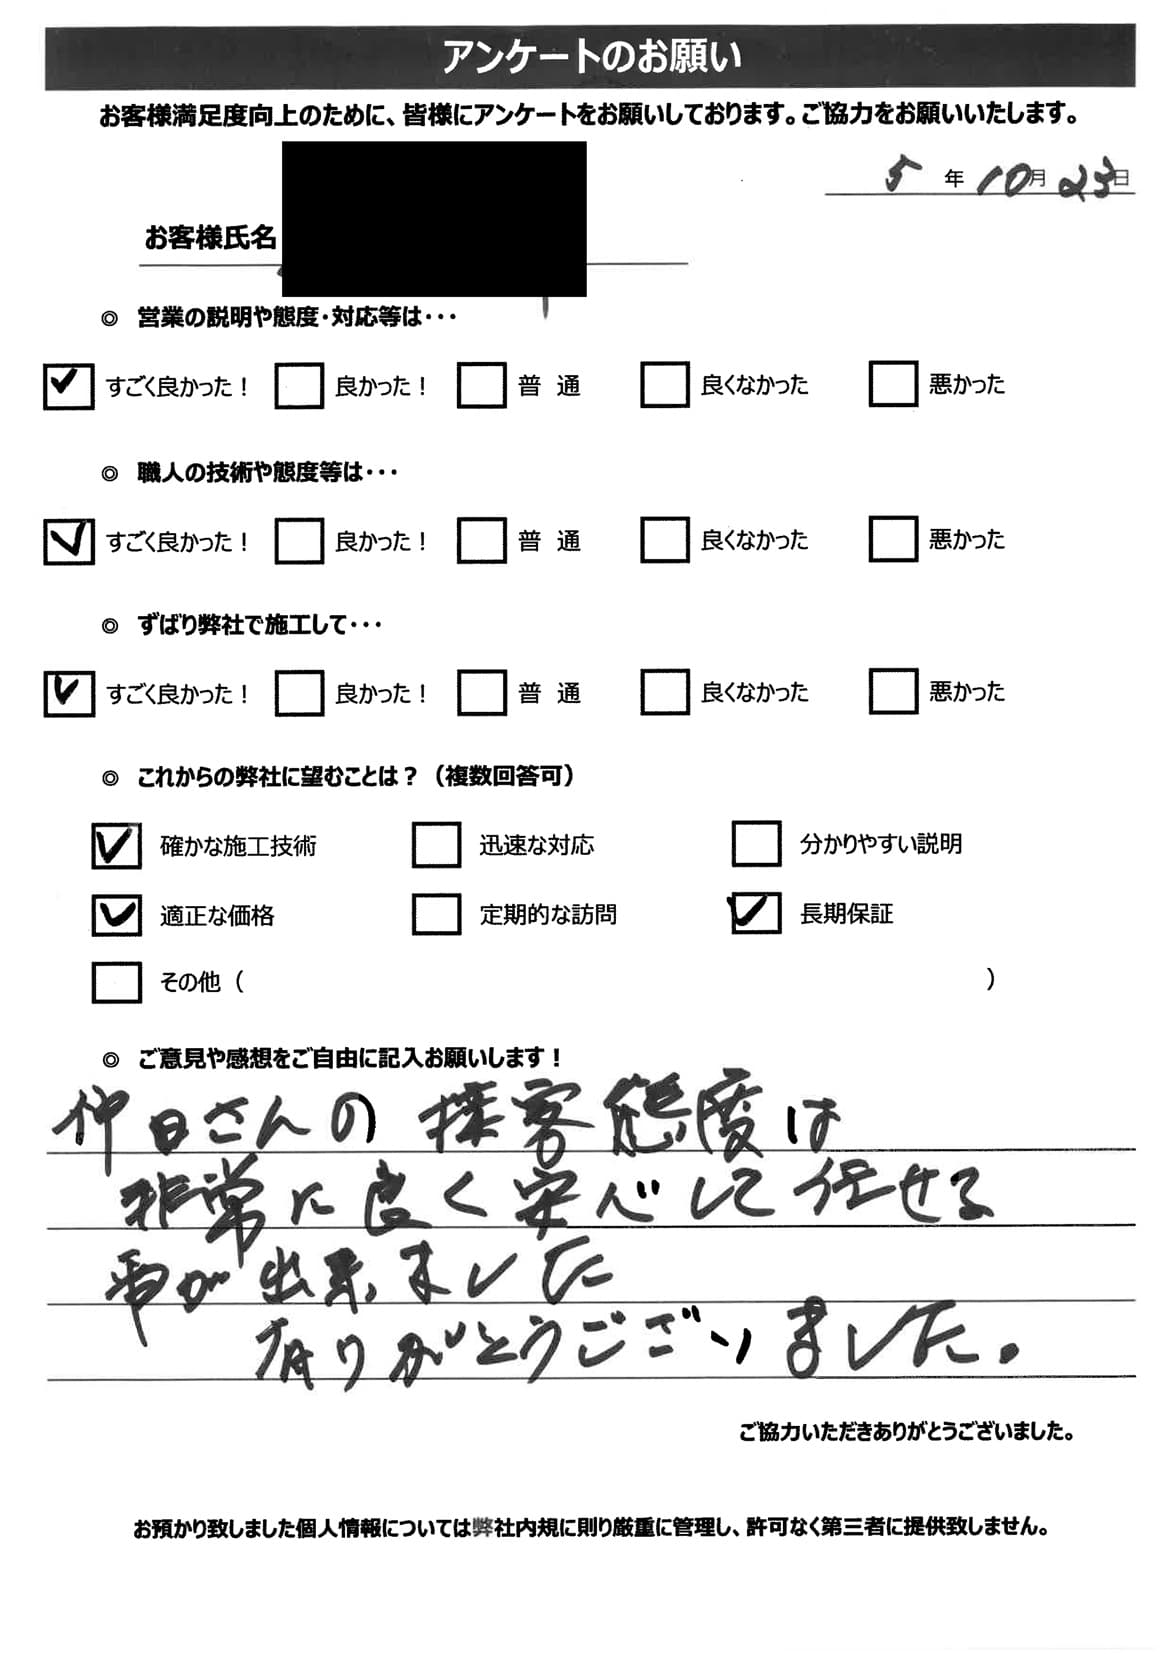 アンケートのお願い
お客様満足度向上のために、皆様にアンケートをお願いしております。ご協力をお願いいたします。
5 年 10 月 23 日
お客様氏名
◎ 営業の説明や態度・対応等は・・・
すごく良かった！ 良かった！ 普 通 良くなかった 悪かった
◎ 職人の技術や態度等は・・・
すごく良かった！ 良かった！ 普 通 良くなかった 悪かった
◎ ずばり弊社で施工して・・・
すごく良かった！ 良かった！ 普 通 良くなかった 悪かった
◎ これからの弊社に望むことは？（複数回答可）
確かな施工技術 迅速な対応 分かりやすい説明
適正な価格 定期的な訪問 長期保証
その他（ ）
◎ ご意見や感想をご自由に記入お願いします！
さんの接客態度は
非常に良く安心して任せる
事が出来ました
有りがとうございました。
ご協力いただきありがとうございました。
お預かり致しました個人情報については弊社内規に則り厳重に管理し、許可なく第三者に提供致しません。